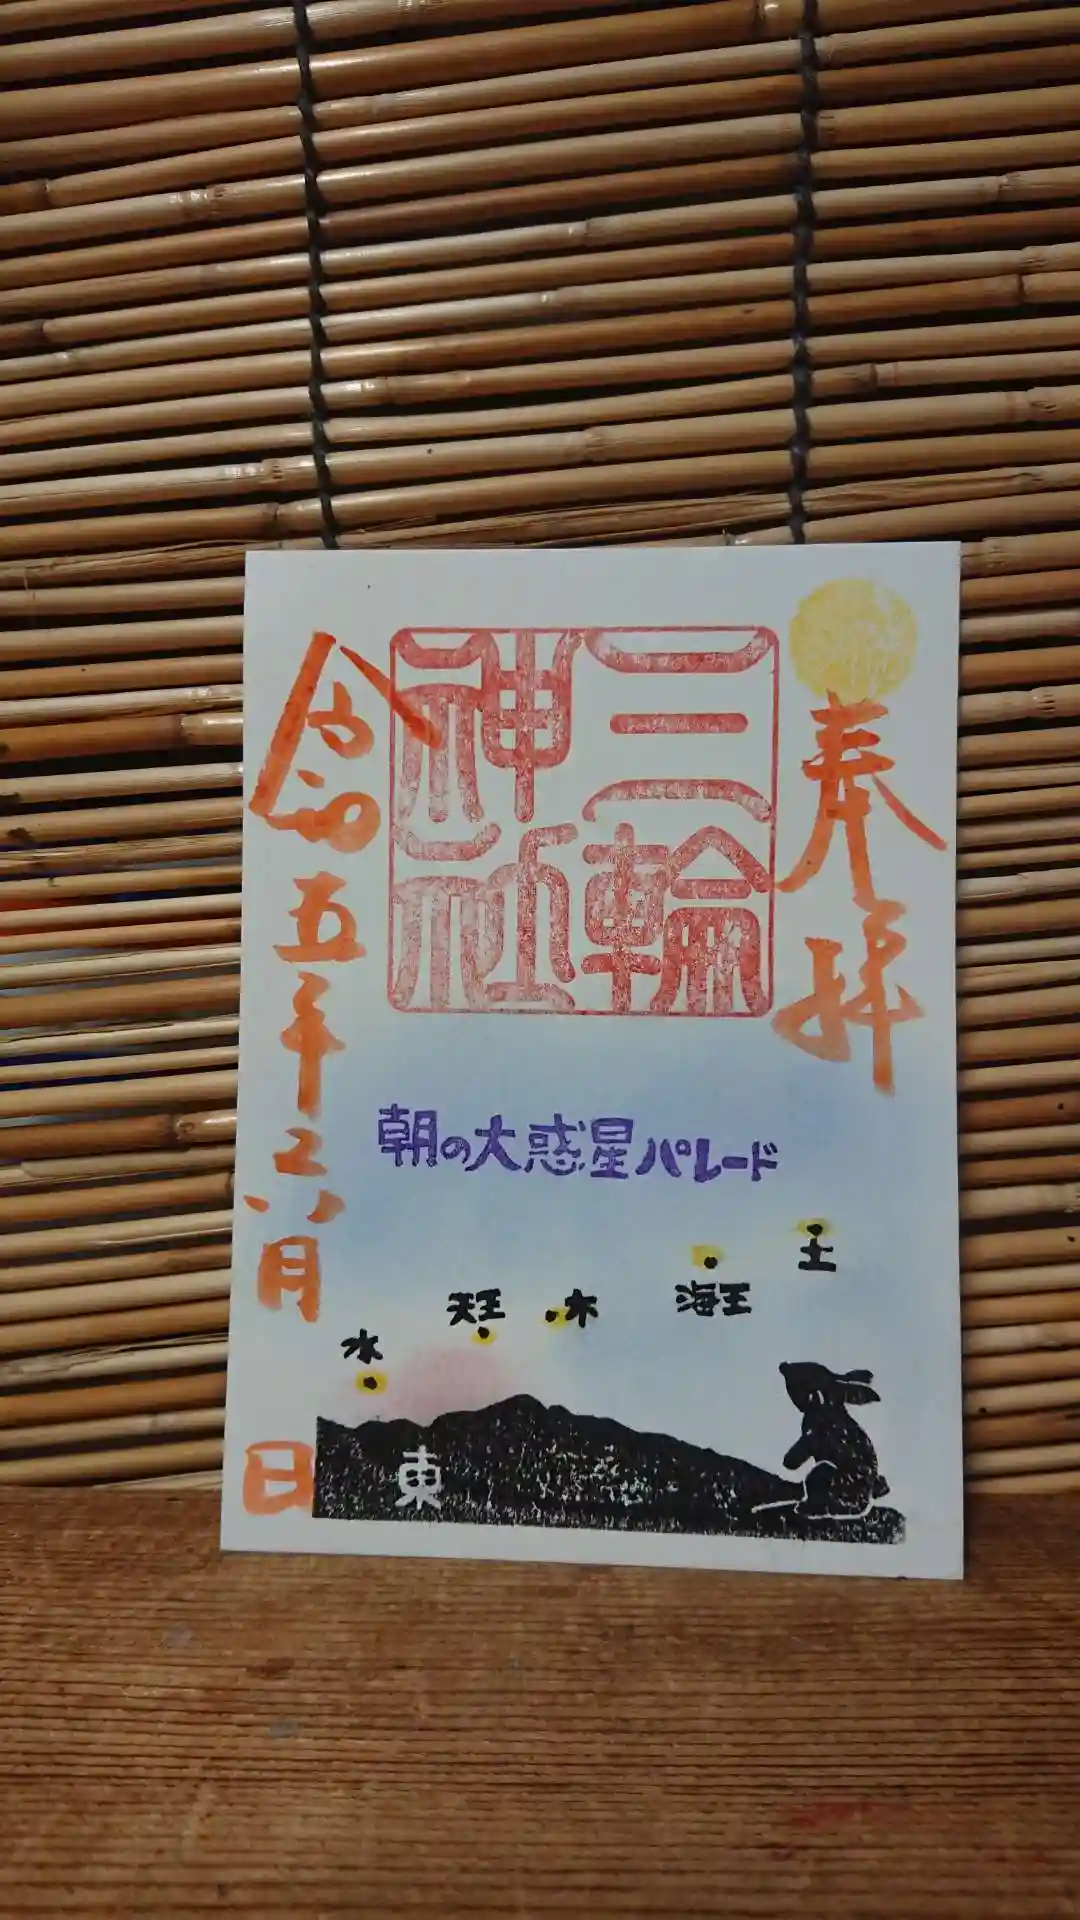 奉拝
三輪
神社
令和五年
六月
日
朝の大惑星パレード
土
海王
木
天王
水
東